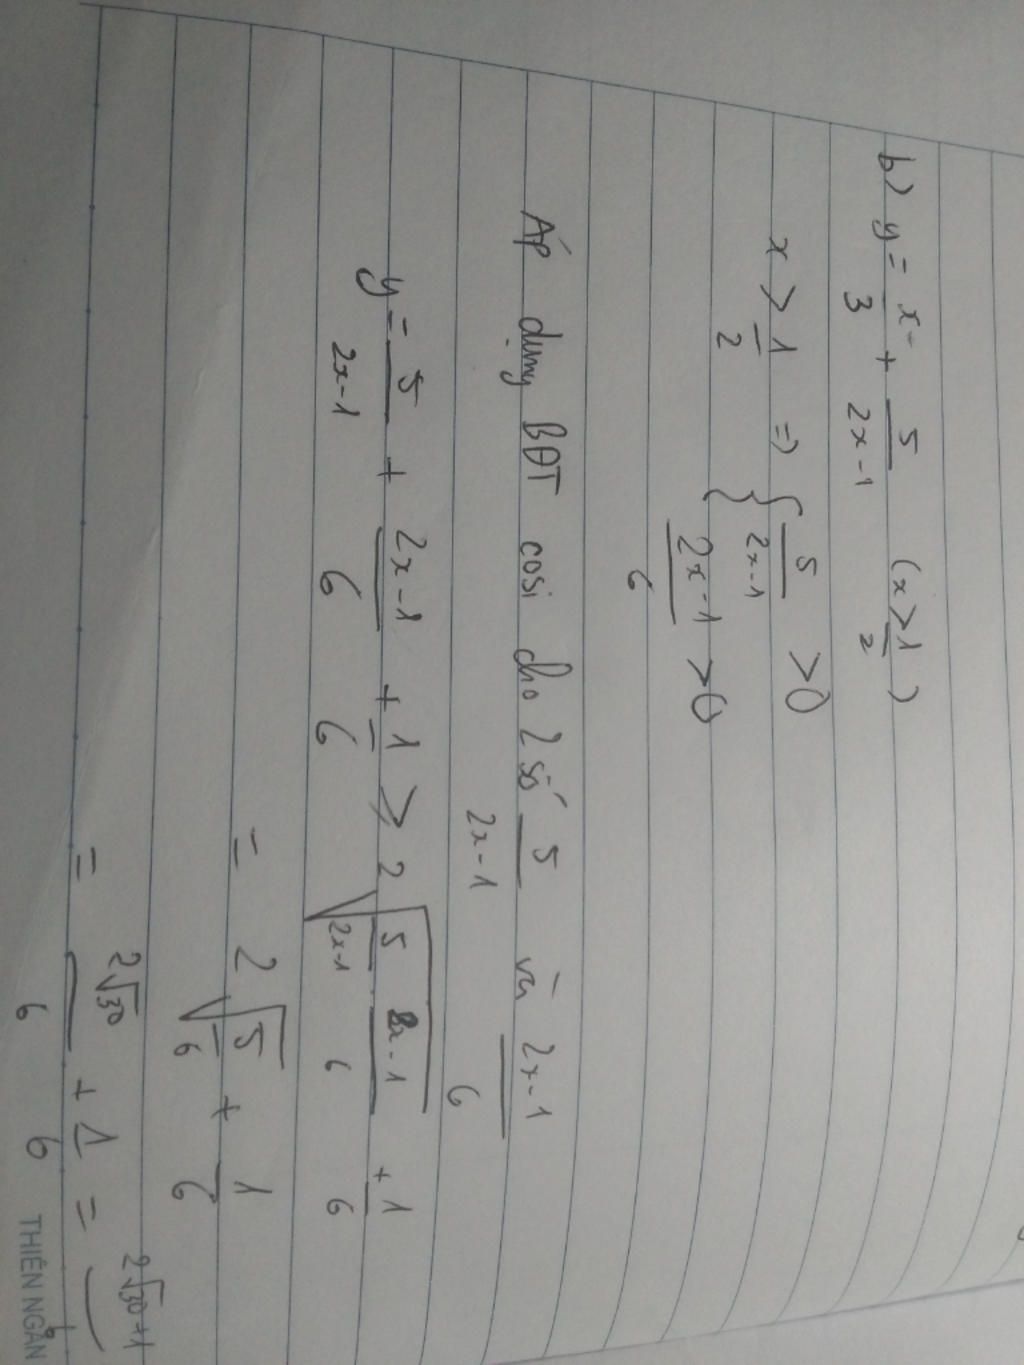 b) y = x/3 + 5/(2x-1) (x > 1/2)
x > 1/2 => { 5/(2x-1) > 0
(2x-1)/6 > 0
Áp dụng BĐT cosi cho 2 số 5/(2x-1) và (2x-1)/6
y = 5/(2x-1) + (2x-1)/6 + 1/6 ≥ 2√(5/(2x-1) . (2x-1)/6) + 1/6
= 2√(5/6) + 1/6
= 2√30/6 + 1/6 = 2√30+1
THIÊN NGÂN